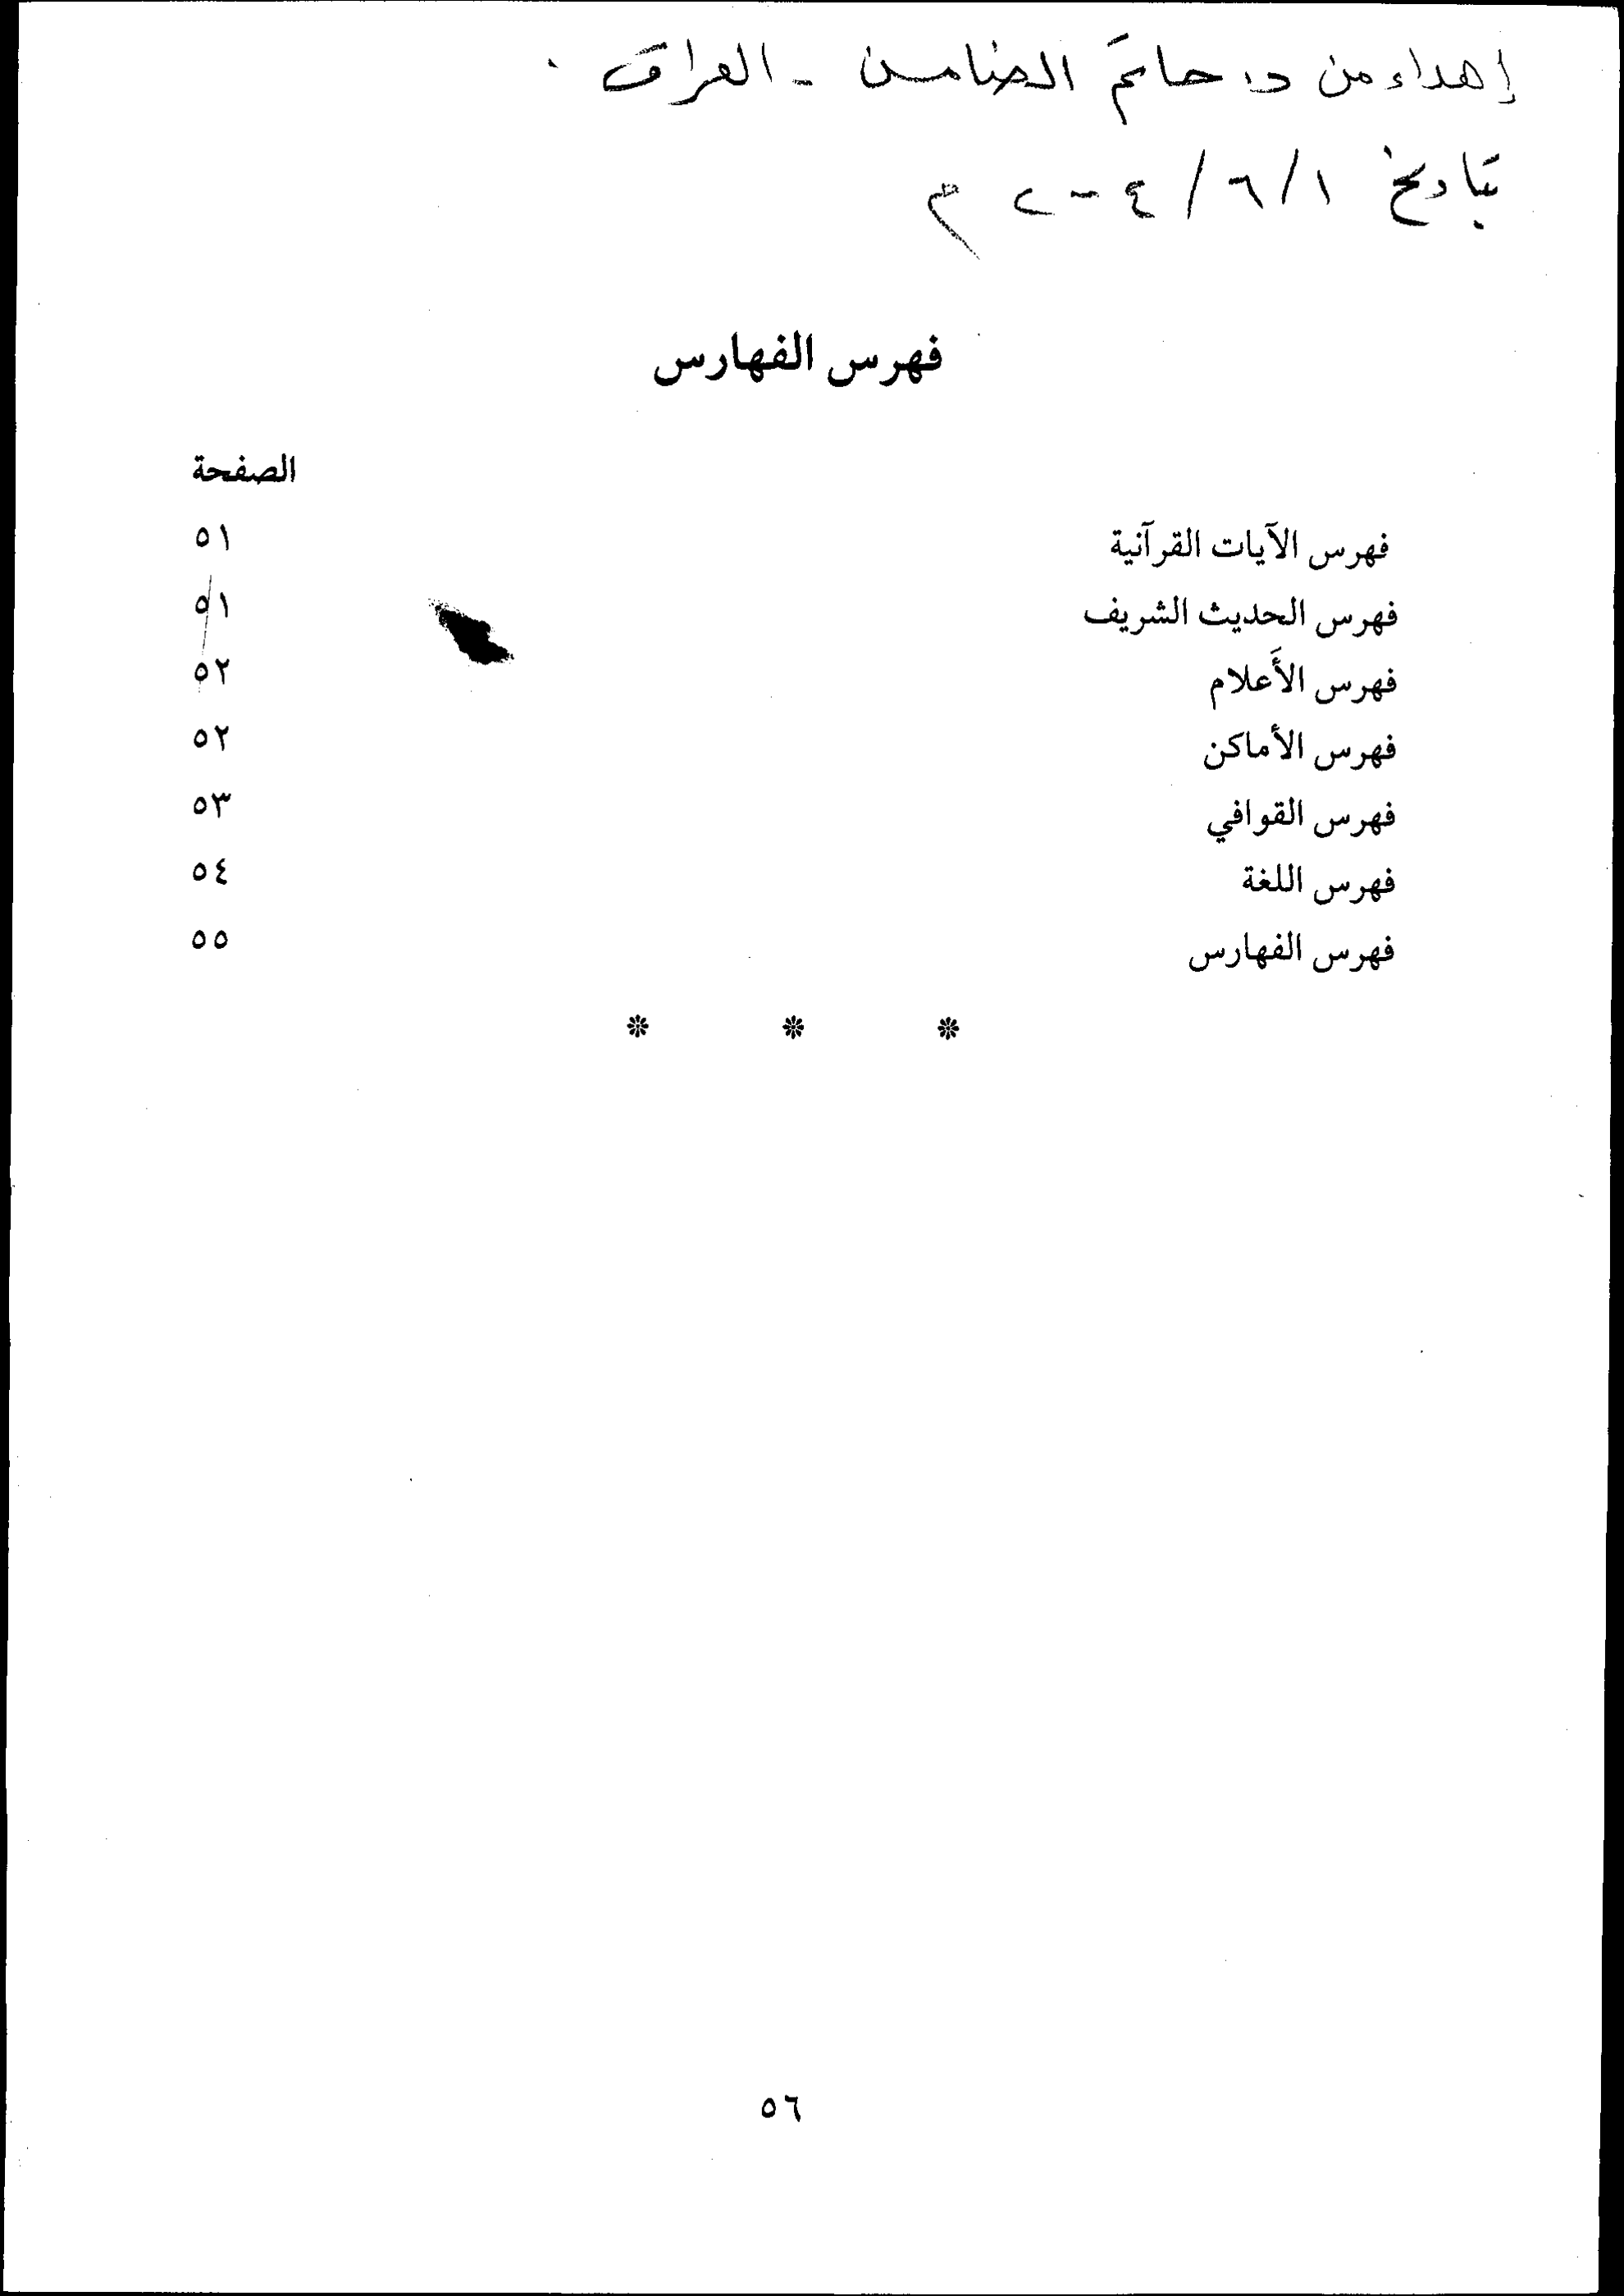 إهداء من د. حاتم الضامن - العراق .
بتاريخ ١/٦/٢٠٠٤ م
فهرس الفهارس
الصفحة
فهرس الآيات القرآنية ٥١
فهرس الحديث الشريف ٥١
فهرس الأَعلام ٥٢
فهرس الأماكن ٥٢
فهرس القوافي ٥٣
فهرس اللغة ٥٤
فهرس الفهارس ٥٥
* * *
٥٦